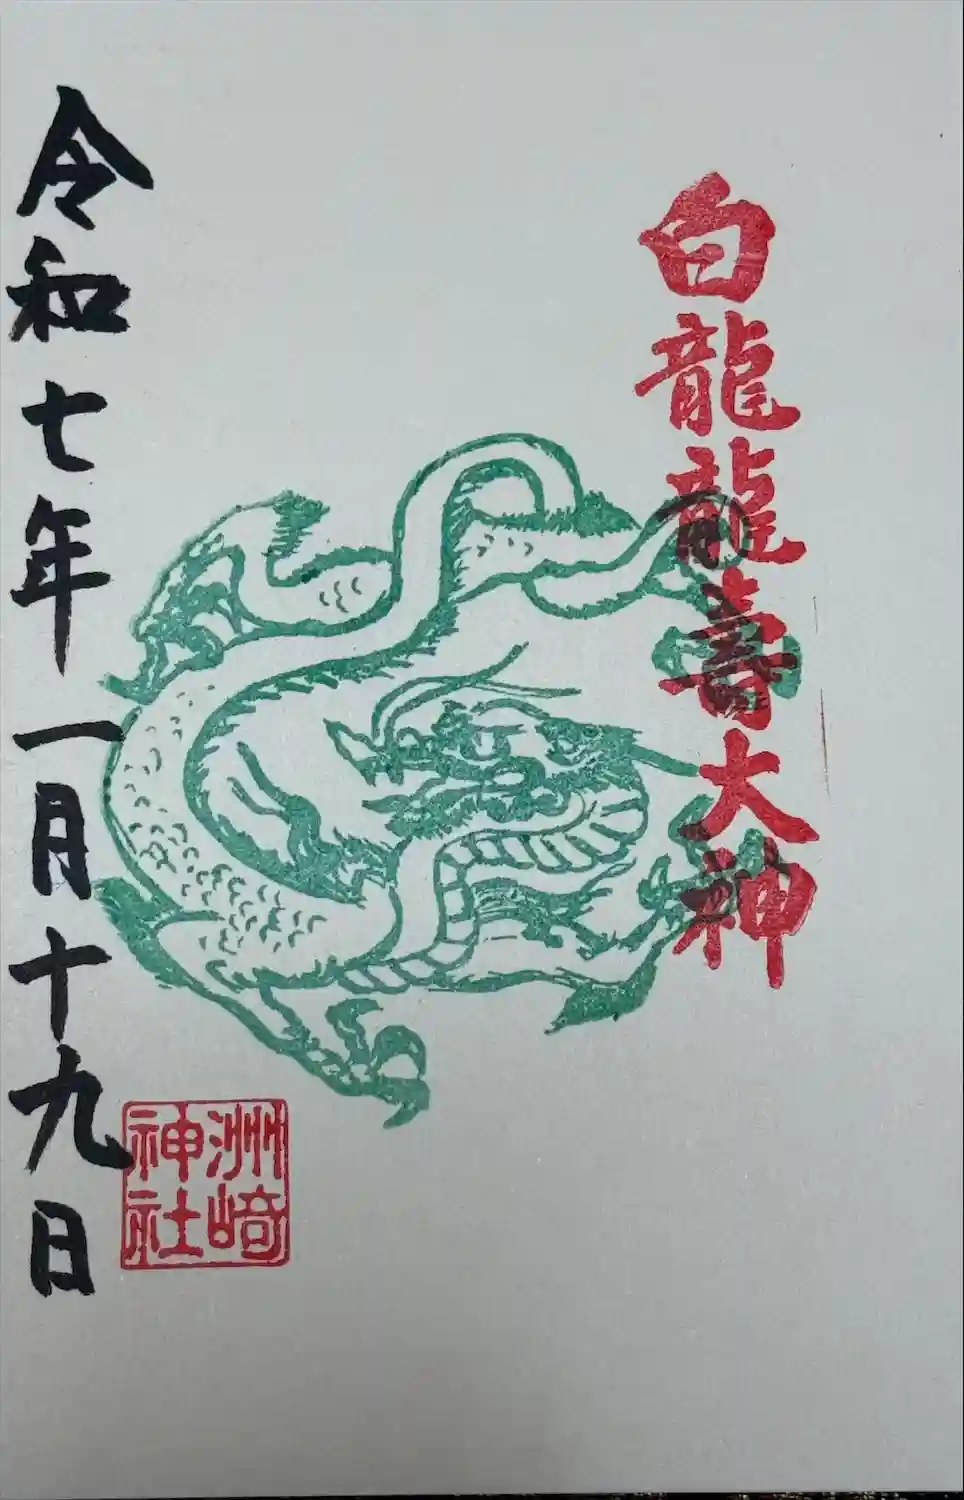 白龍龍寿大神
令和七年一月十九日
洲崎
神社